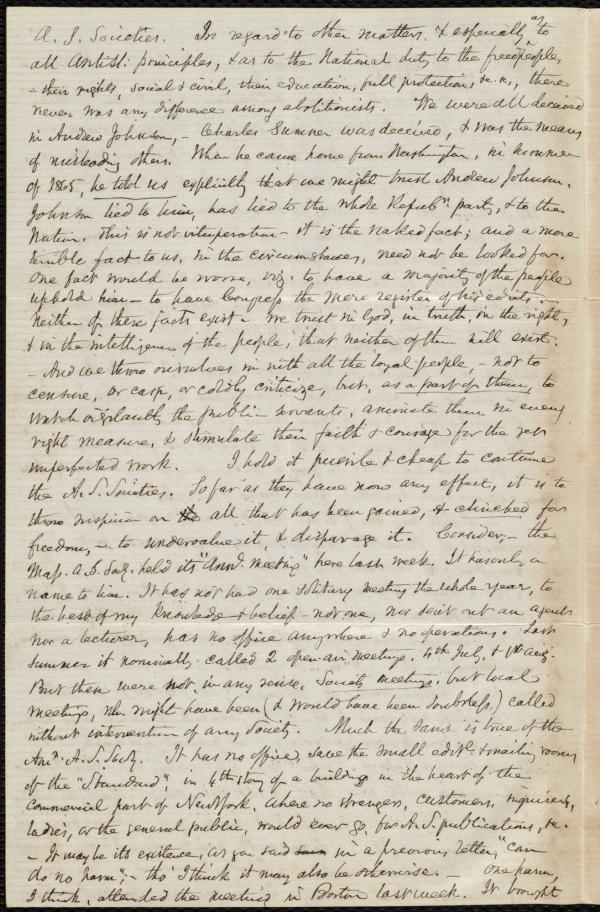 A. S. Societies. In regard to other matters, & especially as to
all AntiSl: principles, & as to the National duty to the freedpeople,
- their rights, social & civil, their education, full protection, &c. &c., there
never was any difference among abolitionists. We were all deceived
in Andrew Johnson, - Charles Sumner was deceived, & was the means
of misleading others. When he came home from Washington, in summer
of 1865, he told us explicitly that we might trust Andrew Johnson.
Johnson lied to him, has lied to the whole Repubn. party, & to the
Nation. This is not vituperation - it is the naked fact; and a more
terrible fact to us, in the circumstances, need not be looked for.
One fact would be worse, viz. to have a majority of the people
uphold him - to have Congress the mere register of his edicts. -
Neither of these facts exist - we trust in God, in truth, in the right,
& in the intelligence of the people, that neither of them will exist.
- And we throw ourselves in with all the loyal people, - not to
censure, or carp, or coldly criticize, but, as a part of them, to
watch vigilantly the public servants, animate them in every
right measure, & stimulate their faith & courage for the yet
unperfected work. I hold it puerile & cheap to continue
the A. S. Societies. So far as they have now any effect, it is to
throw suspicion on all that has been gained, & clinched for
freedom, - to undervalue it, & disparage it. Consider, - the
Mass. A. S. Socy. held its "Annl. meeting" here last week. It has only a
name to live. It has not had one solitary meeting the whole year, to
the best of my knowledge & belief - not one, nor sent out an agent
nor a lecturer, has no office anywhere & no operations. Last
summer it nominally called 2 open-air meetings. 4th July, & 1st Aug.
But these were not, in any sense, Society meetings, but local
meetings, wh. might have been (& would have been doubtless,) called
without intervention of any Society. Much the same is true of the
Amn. A. S. Socy. It has no office, save the small editl. & mailing rooms
of the "Standard", in 4th story of a building in the heart of the
commercial part of New York, where no strangers, customers, inquirers,
ladies, or the general public, would ever go, for A. S. publications, &c.
- It may be its existence, as you said in a previous letter, "can
do no harm"; - tho' I think it may also be otherwise. - One harm,
I think, attended the meeting in Boston last week. It brought